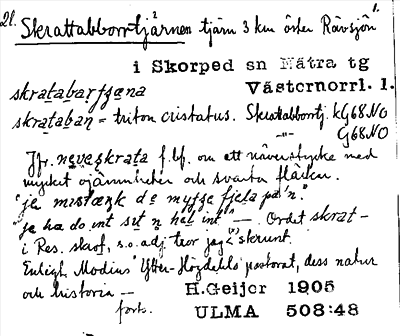 21. Skrattabborrtjärnen tjärn 3 km öster Rävsjön 1.
i Skorped sn Nätra tg
Västernorrl. l.
skratabartjena
skrataban = triton cristatus. Skrattabborrtj. kG68NO
-"- G68NO
Jfr. neveskrata f. lf. om ett näverstycke med
mycket ojämnheter och svarta fläckar.
"je mistænk de mytje fjela pa'n."
"je ha do int sit n hel int" — Ordet skrat-
i Res. skrof, s.o. adj. tror jag skrunt.
Enligt Modins Ytter-Högdahls pastorat, dess natur
och historia --
forts.
H.Geijer 1905
ULMA 508:48